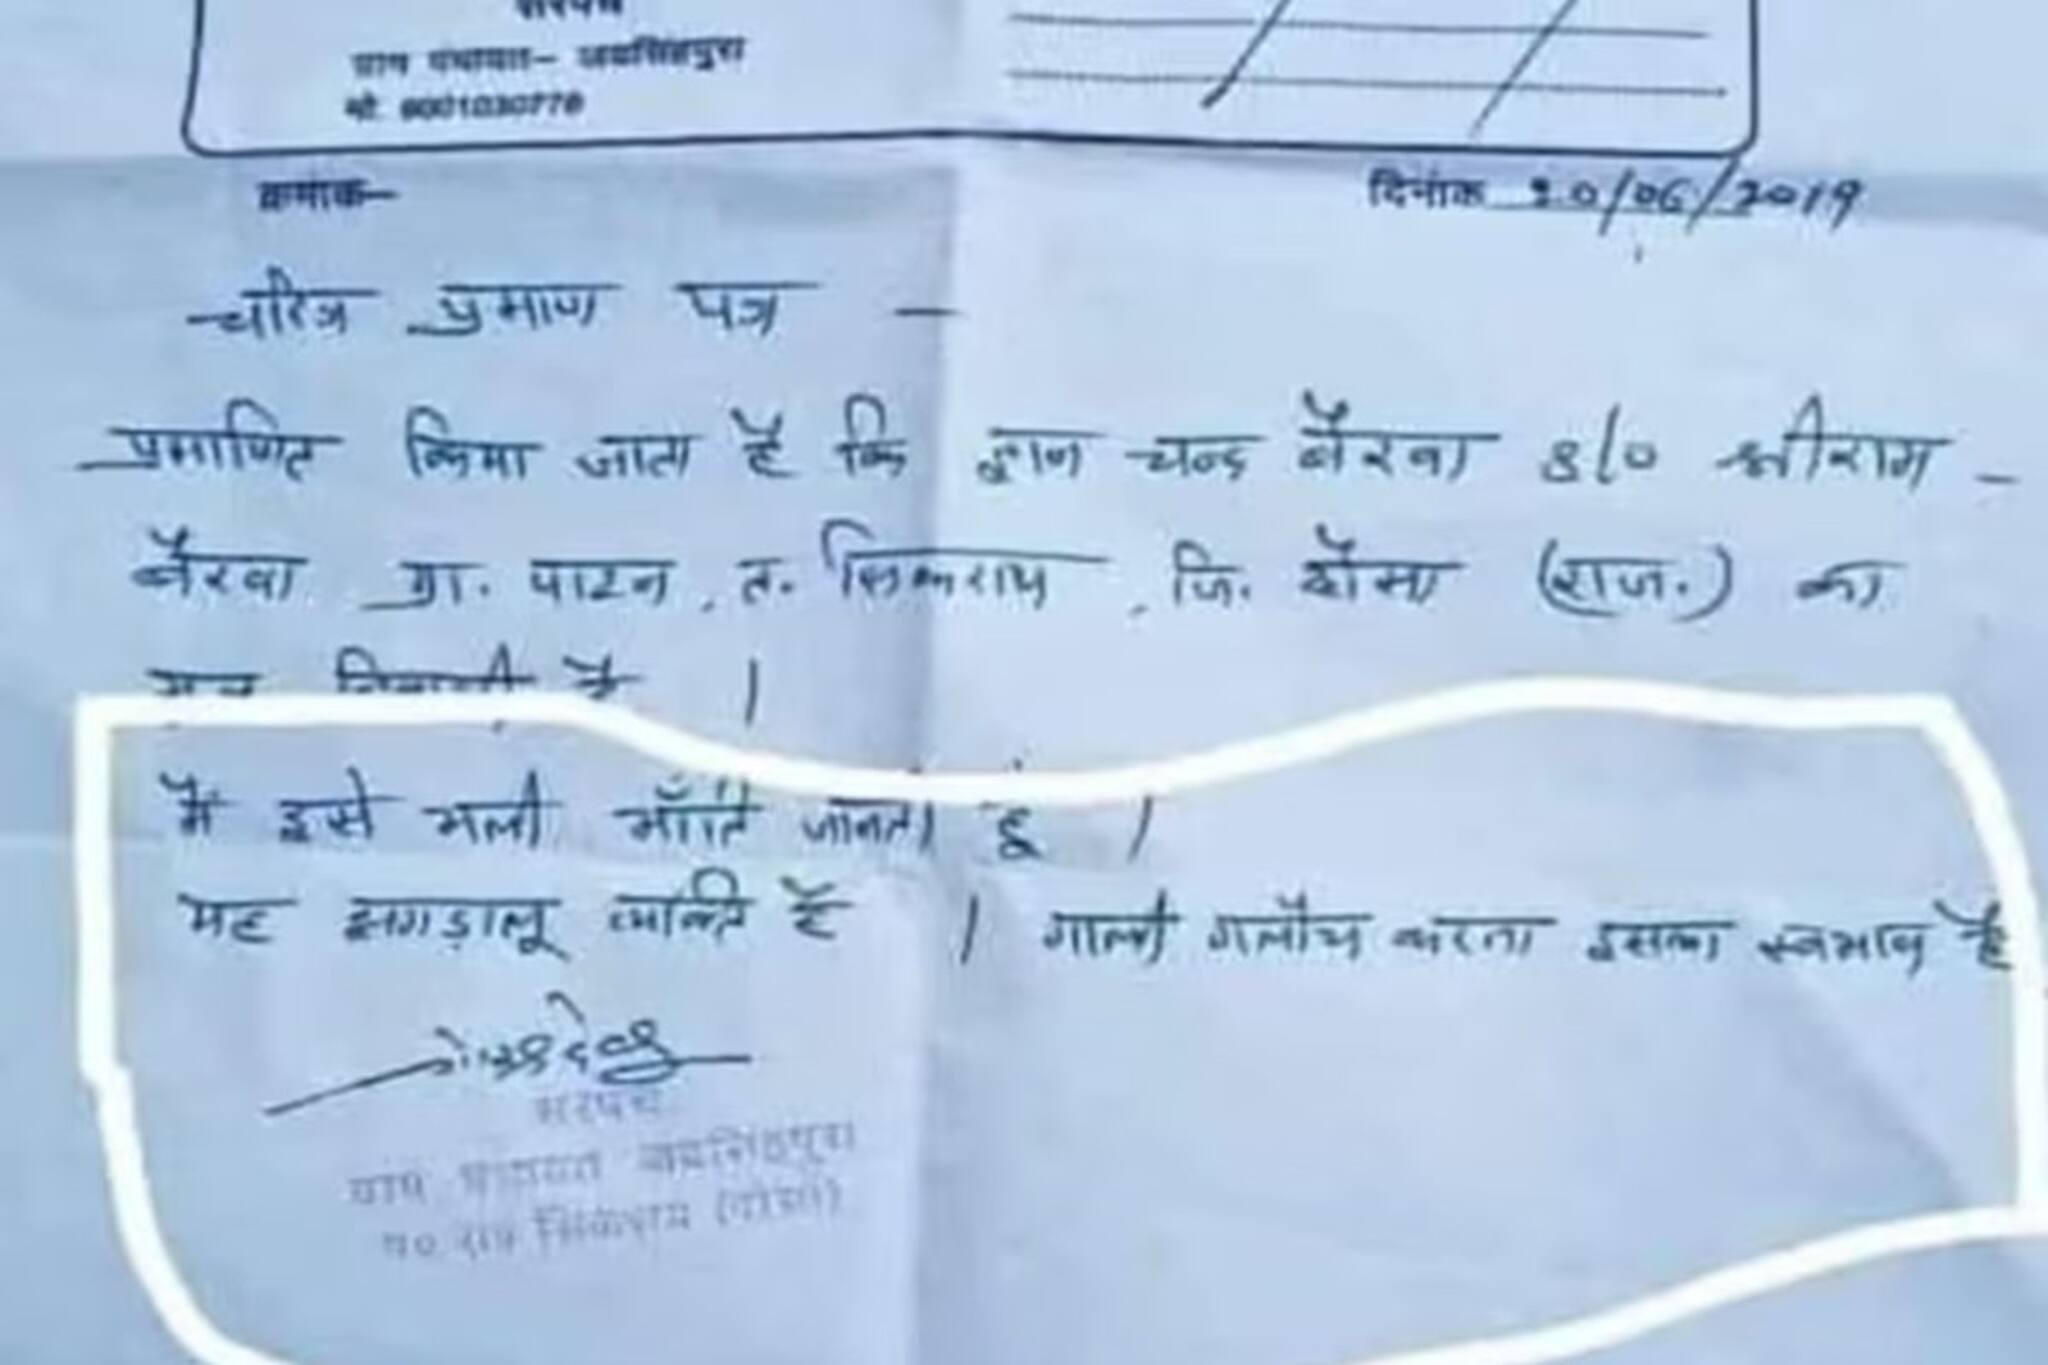 सरपंच
ग्राम पंचायत- जयसिंहपुरा
मो. 9001030778
क्रमांक-
दिनांक 20/06/2019
चरित्र प्रमाण पत्र -
प्रमाणित किया जाता है कि ज्ञान चन्द बैरवा S/o श्रीराम -
बैरवा ग्रा. पाटन, त. सिकराय, जि. दौसा (राज.) का
मूल निवासी है ।
मैं इसे भली भाँति जानती हूं ।
यह झगड़ालू व्यक्ति है । गाली गलौच करना इसका स्वभाव है
सरपंच
ग्राम पंचायत जयसिंहपुरा
पं० स० सिकराय (दौसा)